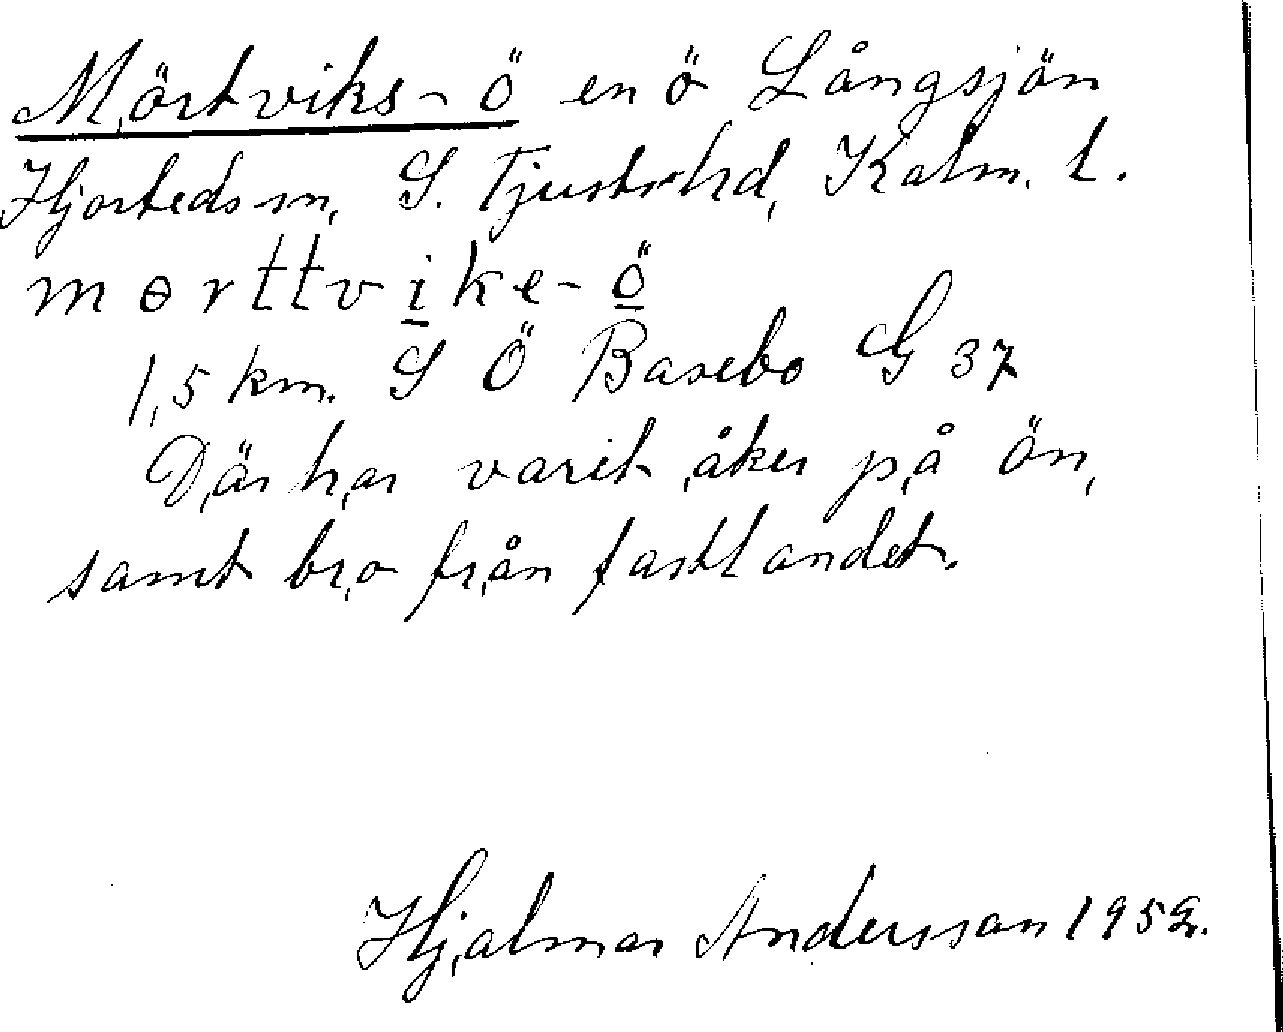 Mörtviks-ö en ö Långsjön
Hjorteds sn, S. Tjusts hd, Kalm. l.
mɵrttvike-ö
1,5 km. S Ö Basebo G 37
Där har varit åker på ön,
samt bro från fastlandet.
Hjalmar Andersson 1952.